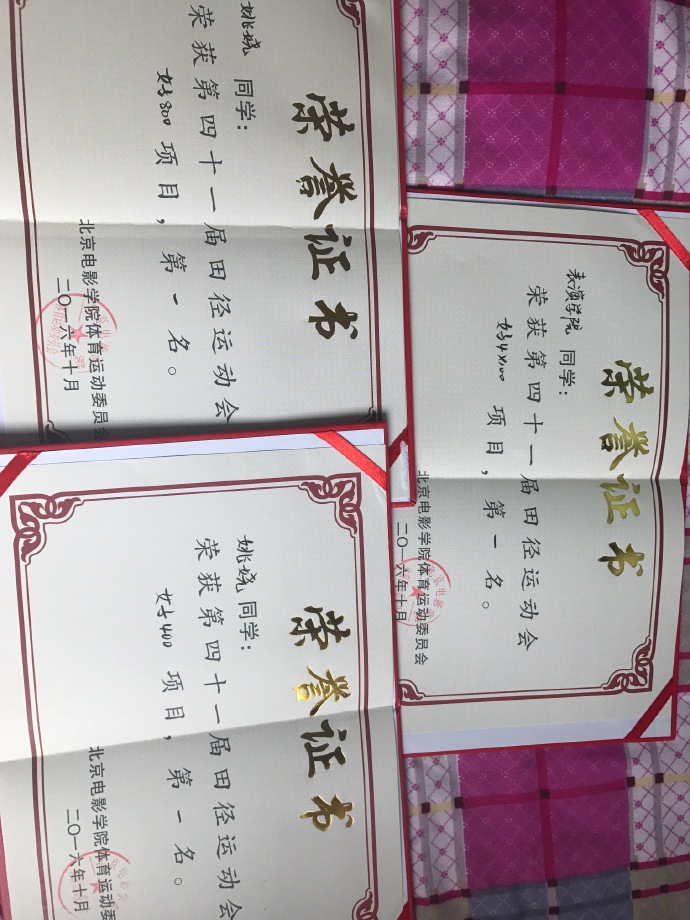 荣誉证书
姚娆 同学：
荣获第四十一届田径运动会
女子800 项目，第一名。
北京电影学院体育运动委员会
二〇一六年十月
荣誉证书
表演学院 同学：
荣获第四十一届田径运动会
女子4×100 项目，第一名。
北京电影学院体育运动委员会
二〇一六年十月
荣誉证书
姚娆 同学：
荣获第四十一届田径运动会
女子400 项目，第一名。
北京电影学院体育运动委
二〇一六年十月